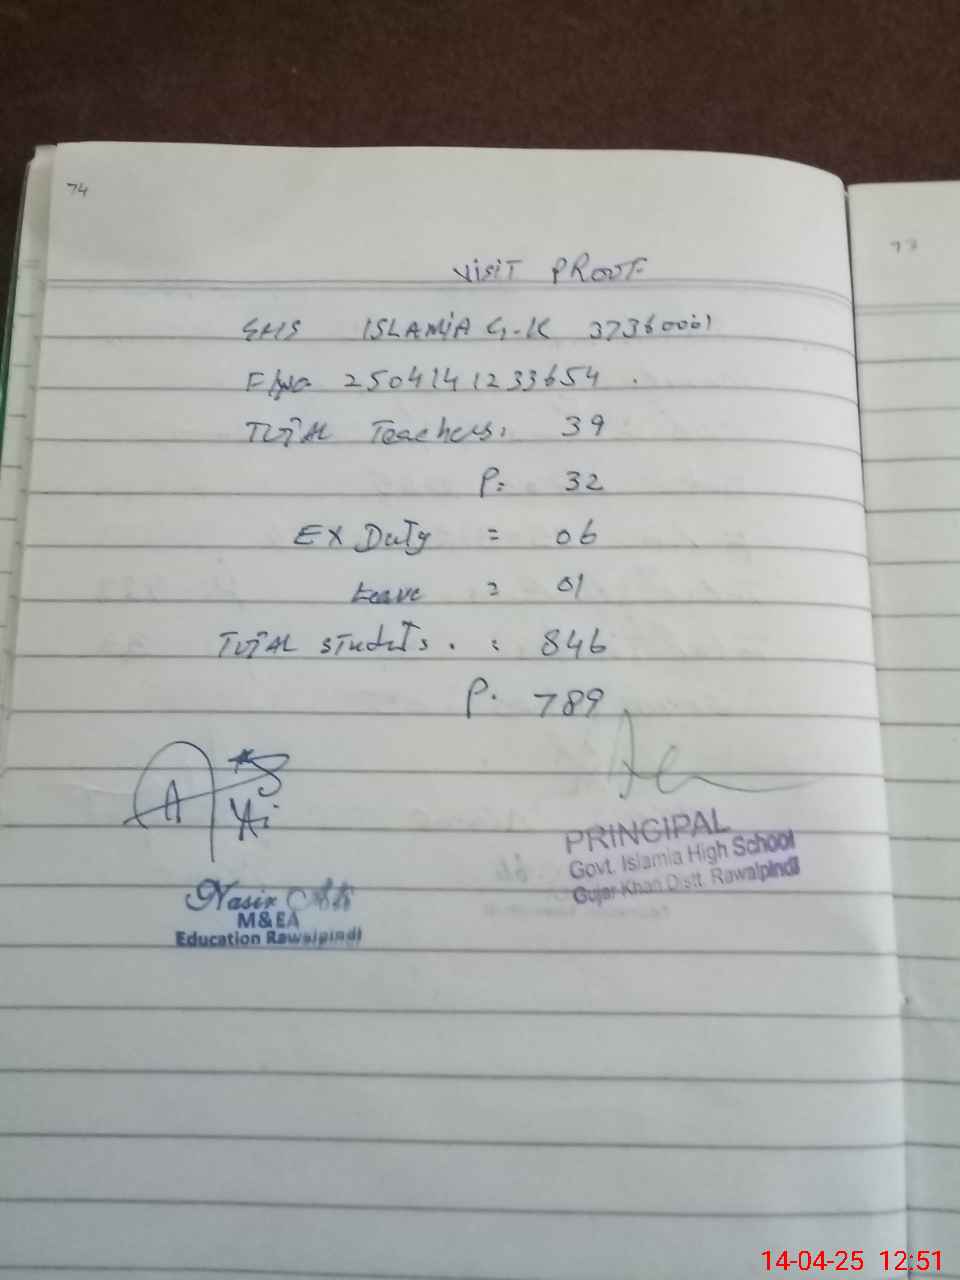 74
73
VISIT PROOF
GHS ISLAMIA G-K 37360061
F/No 2504141233654 .
TOTAL Teachers: 39
P= 32
EX Duty = 06
Leave = 01
TOTAL students . : 846
P. 789
Nasir Ali
M&EA
Education Rawalpindi
PRINCIPAL
Govt. Islamia High School
Gujar Khan Distt. Rawalpindi
14-04-25 12:51